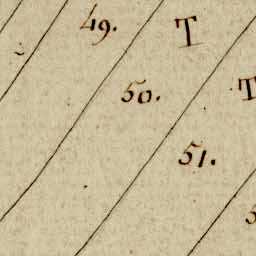 49. T
50. T
51.